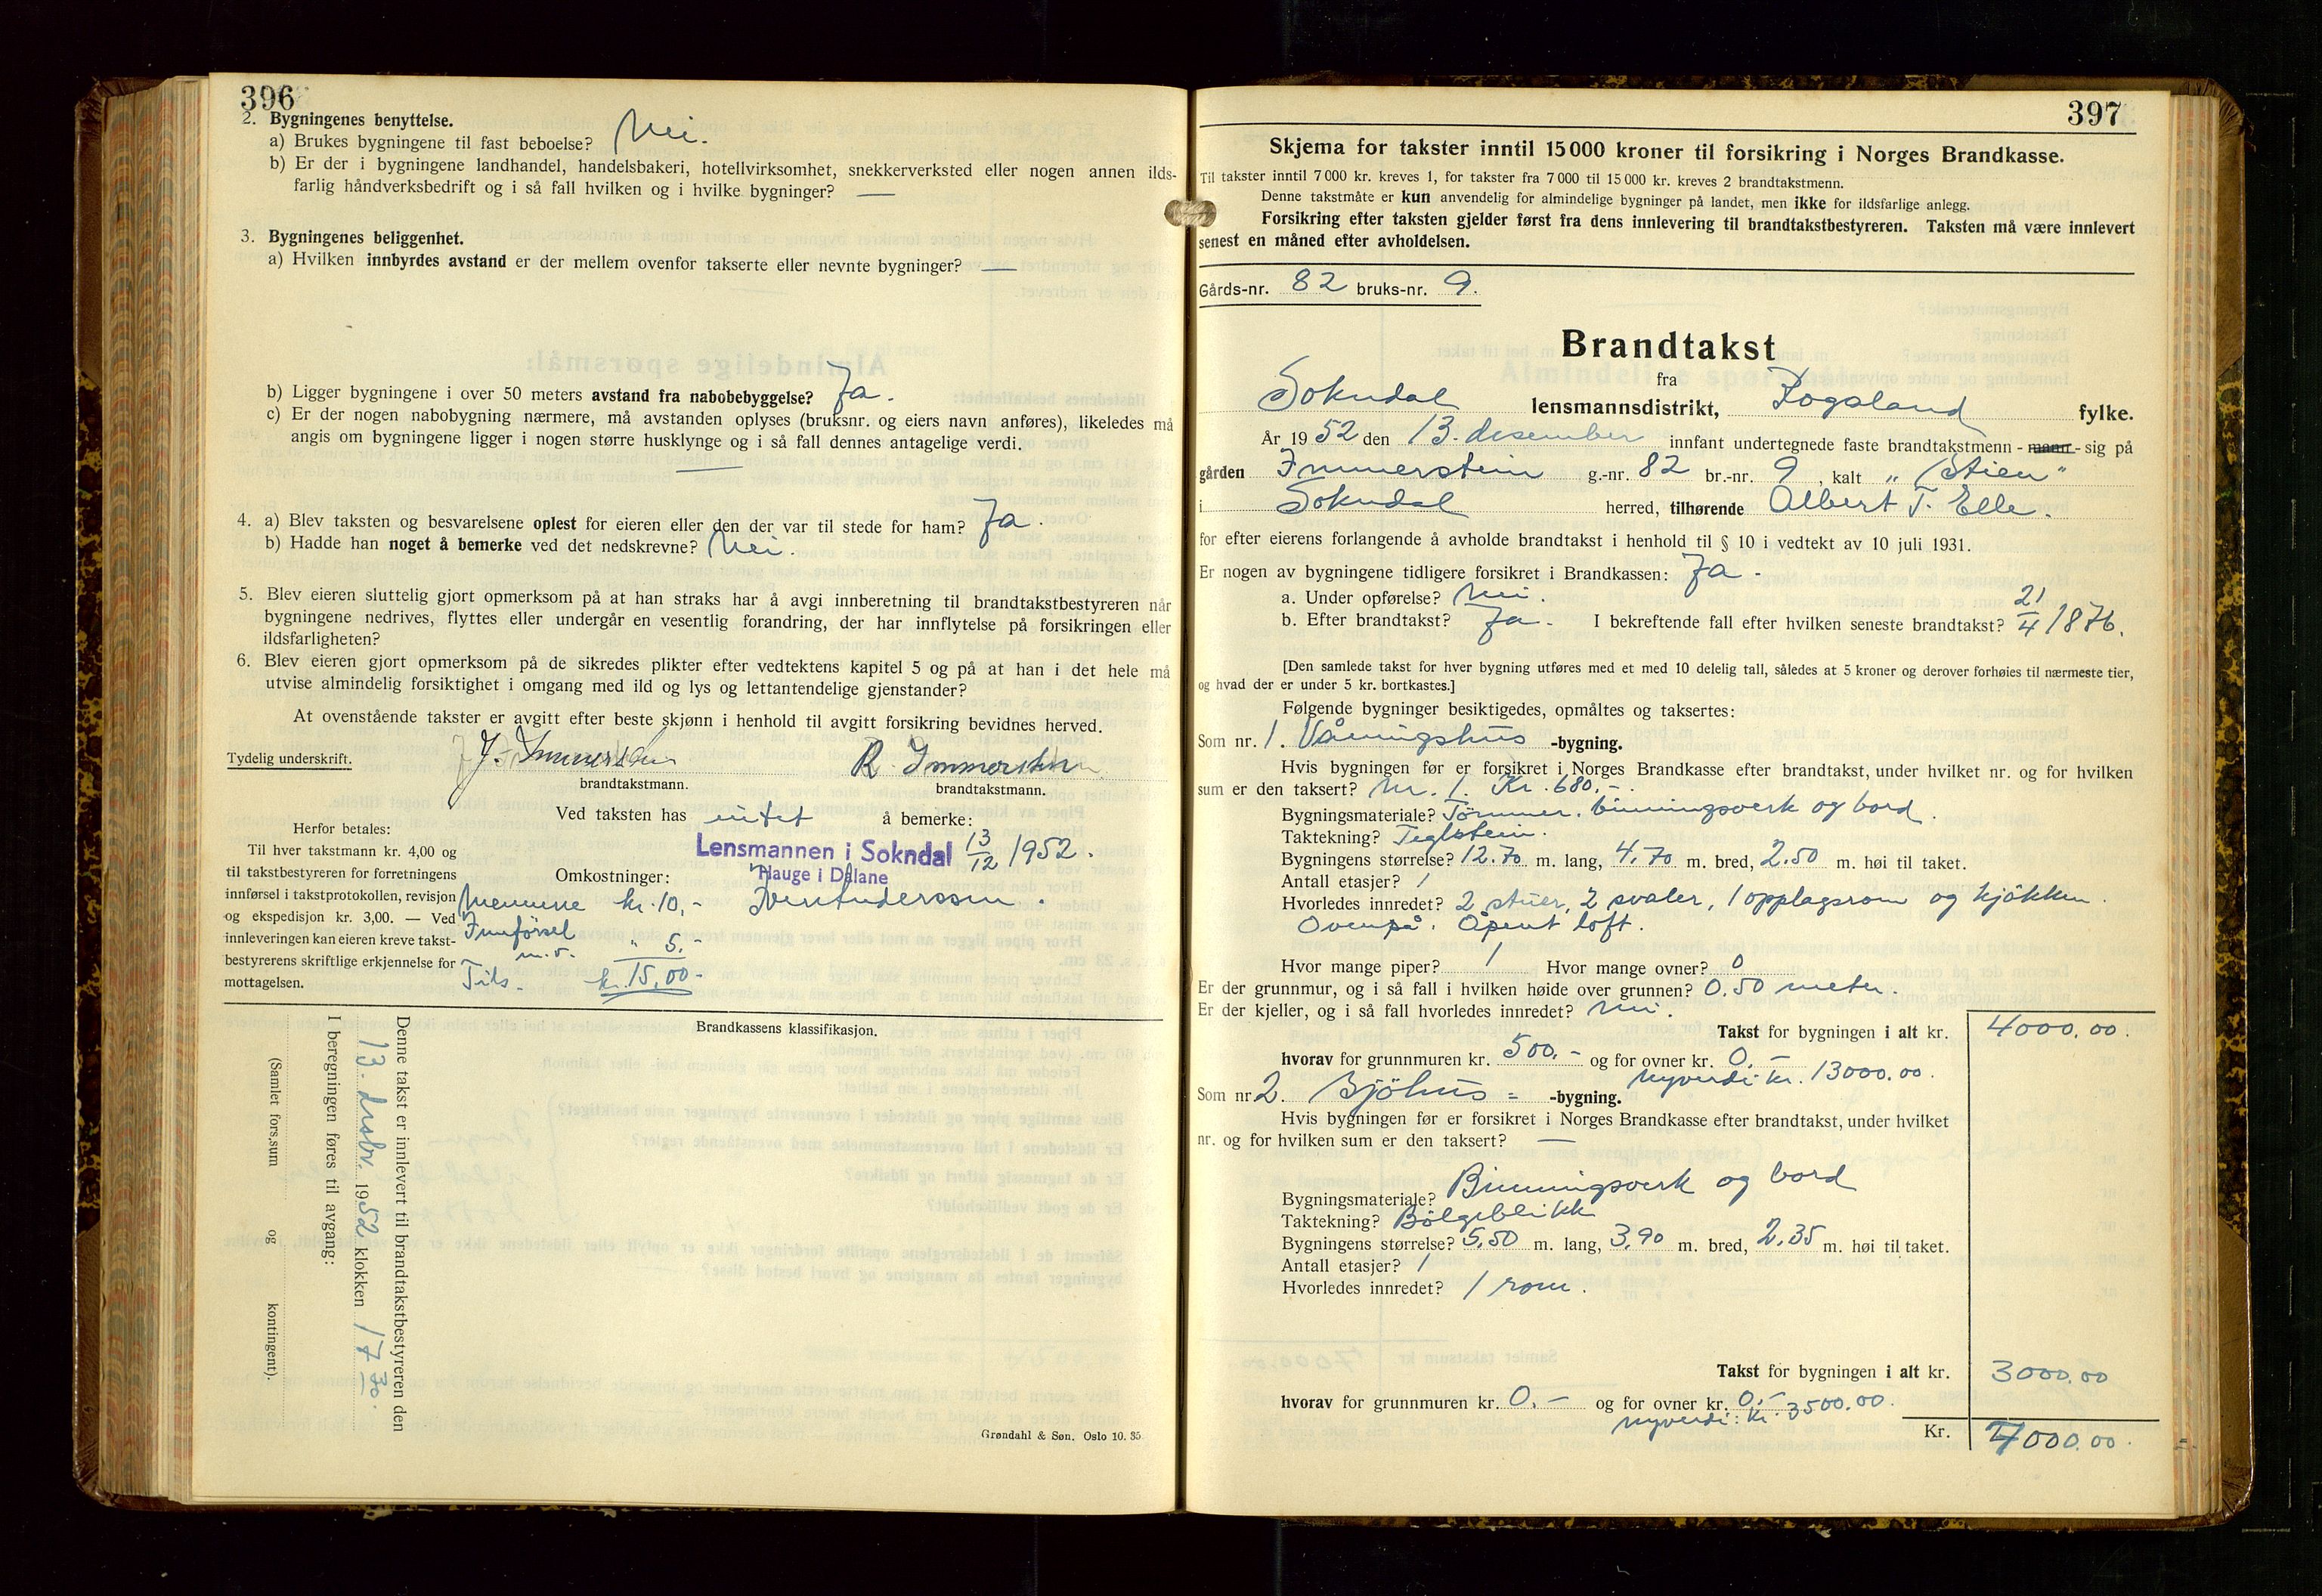 396
2. Bygningenes benyttelse.
a) Brukes bygningene til fast beboelse? Nei.
b) Er der i bygningene landhandel, handelsbakeri, hotellvirksomhet, snekkerverksted eller nogen annen ilds-
farlig håndverksbedrift og i så fall hvilken og i hvilke bygninger? —
3. Bygningenes beliggenhet.
a) Hvilken innbyrdes avstand er der mellem ovenfor takserte eller nevnte bygninger? —
b) Ligger bygningene i over 50 meters avstand fra nabobebyggelse? Ja.
c) Er der nogen nabobygning nærmere, må avstanden oplyses (bruksnr. og eiers navn anføres), likeledes må
angis om bygningene ligger i nogen større husklynge og i så fall dennes antagelige verdi.
—
4. a) Blev taksten og besvarelsene oplest for eieren eller den der var til stede for ham? Ja.
b) Hadde han noget å bemerke ved det nedskrevne? Nei.
5. Blev eieren sluttelig gjort opmerksom på at han straks har å avgi innberetning til brandtakstbestyreren når
bygningene nedrives, flyttes eller undergår en vesentlig forandring, der har innflytelse på forsikringen eller
ildsfarligheten?
6. Blev eieren gjort opmerksom på de sikredes plikter efter vedtektens kapitel 5 og på at han i det hele må
utvise almindelig forsiktighet i omgang med ild og lys og lettantendelige gjenstander?
At ovenstående takster er avgitt efter beste skjønn i henhold til avgitt forsikring bevidnes herved.
Tydelig underskrift. J. Immerstein R. Immerstein
brandtakstmann. brandtakstmann.
Ved taksten has intet å bemerke:
Lensmannen i Sokndal 13/12 1952.
Hauge i Dalane
Herfor betales:
Til hver takstmann kr. 4,00 og
til takstbestyreren for forretningens
innførsel i takstprotokollen, revisjon
og ekspedisjon kr. 3,00. — Ved
innleveringen kan eieren kreve takst-
bestyrerens skriftlige erkjennelse for
mottagelsen.
Omkostninger:
Mennene kr. 10,-
Innførsel
m.v. " 5.-
Tils. kr. 15,00-
Brandkassens klassifikasjon.
Denne takst er innlevert til brandtakstbestyreren den
13. desbr. 1952 klokken 17 30.
I beregningen føres til avgang:
(Samlet fors.sum og kontingent).
Grøndahl & Søn. Oslo 10. 35.
397
Skjema for takster inntil 15 000 kroner til forsikring i Norges Brandkasse.
Til takster inntil 7 000 kr. kreves 1, for takster fra 7 000 til 15 000 kr. kreves 2 brandtakstmenn.
Denne takstmåte er kun anvendelig for almindelige bygninger på landet, men ikke for ildsfarlige anlegg.
Forsikring efter taksten gjelder først fra dens innlevering til brandtakstbestyreren. Taksten må være innlevert
senest en måned efter avholdelsen.
Gårds-nr. 82 bruks-nr. 9.
Brandtakst
fra
Sokndal lensmannsdistrikt, Rogaland fylke.
År 1952 den 13. desember innfant undertegnede faste brandtakstmenn - mann - sig på
gården Immerstein g.-nr. 82 br.-nr. 9, kalt "Stien"
i Sokndal herred, tilhørende Albert T. Elle.
for efter eierens forlangende å avholde brandtakst i henhold til § 10 i vedtekt av 10 juli 1931.
Er nogen av bygningene tidligere forsikret i Brandkassen: Ja.
a. Under opførelse? Nei.
b. Efter brandtakst? Ja. I bekreftende fall efter hvilken seneste brandtakst? 21/4 1876.
[Den samlede takst for hver bygning utføres med et med 10 delelig tall, således at 5 kroner og derover forhøies til nærmeste tier,
og hvad der er under 5 kr. bortkastes.]
Følgende bygninger besiktigedes, opmåltes og taksertes:
Som nr. 1. Våningshus -bygning.
Hvis bygningen før er forsikret i Norges Brandkasse efter brandtakst, under hvilket nr. og for hvilken
sum er den taksert? Nr. 1. Kr. 680.-
Bygningsmateriale? Tømmer, binningsverk og bord.
Taktekning? Teglstein.
Bygningens størrelse? 12.70 m. lang, 4.70 m. bred, 2.50 m. høi til taket.
Antall etasjer? 1
Hvorledes innredet? 2 stuer, 2 svaler, 1 opplagsrom og kjøkken.
Ovenpå: Åpent loft.
Hvor mange piper? 1 Hvor mange ovner? 0
Er der grunnmur, og i så fall i hvilken høide over grunnen? 0.50 meter.
Er der kjeller, og i så fall hvorledes innredet? Nei.
Takst for bygningen i alt kr. 4000.00.
hvorav for grunnmuren kr. 500.- og for ovner kr. 0.-
Nyverdi kr. 13000.00.
Som nr 2. Sjøhus = -bygning.
Hvis bygningen før er forsikret i Norges Brandkasse efter brandtakst, under hvilket
nr. og for hvilken sum er den taksert? —
Bygningsmateriale? Binningsverk og bord
Taktekning? Bølgeblikk
Bygningens størrelse? 5.50 m. lang, 3.90 m. bred, 2.35 m. høi til taket.
Antall etasjer? 1
Hvorledes innredet? 1 rom.
Takst for bygningen i alt kr. 3000.00
hvorav for grunnmuren kr. 0.- og for ovner kr. 0.-
Nyverdi: kr. 3500.00.
Kr. 7000.00.